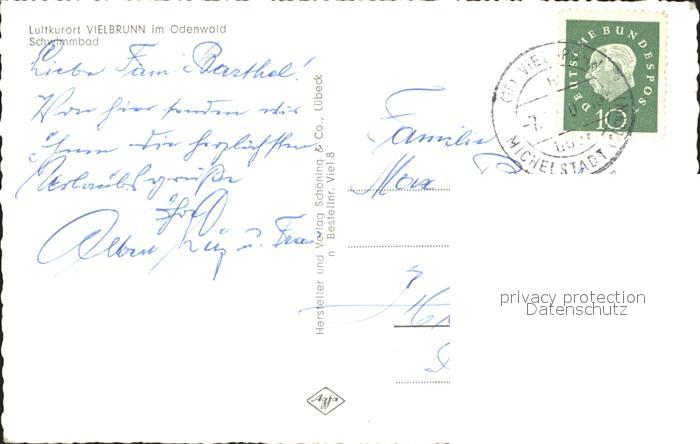 Luftkurort VIELBRUNN im Odenwald
Schwimmbad
Liebe Fam. Barthel!
Von hier senden wir
Ihnen die herzlichsten
Urlaubsgrüße
Ihre
u. Frau
Hersteller und Verlag Schöning & Co., Lübeck
n Bestellnr. Viel 8
DEUTSCHE BUNDESPOST
10
VIELBRUNN
MICHELSTADT
Familie
Max
privacy protection
Datenschutz
Agfa